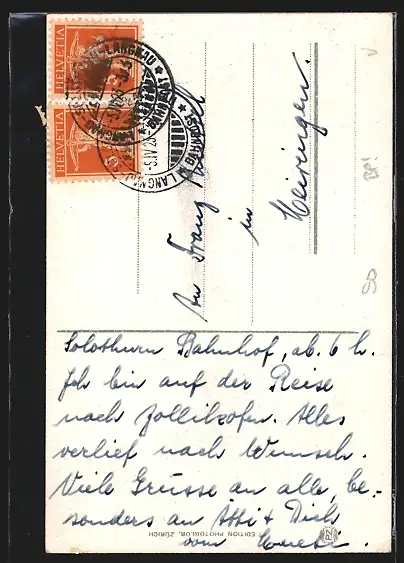 HELVETIA
HELVETIA
LANGNAU
Franz
in
Meiringen.
Solothurn Bahnhof, ab. 6 h.
Ich bin auf der Reise
nach Zollikofen. Alles
verlief nach Wunsch.
Viele Grüsse an alle, be-
sonders an Ätti + Dich
vom
EDITION PHOTOGLOB, ZÜRICH
PZ